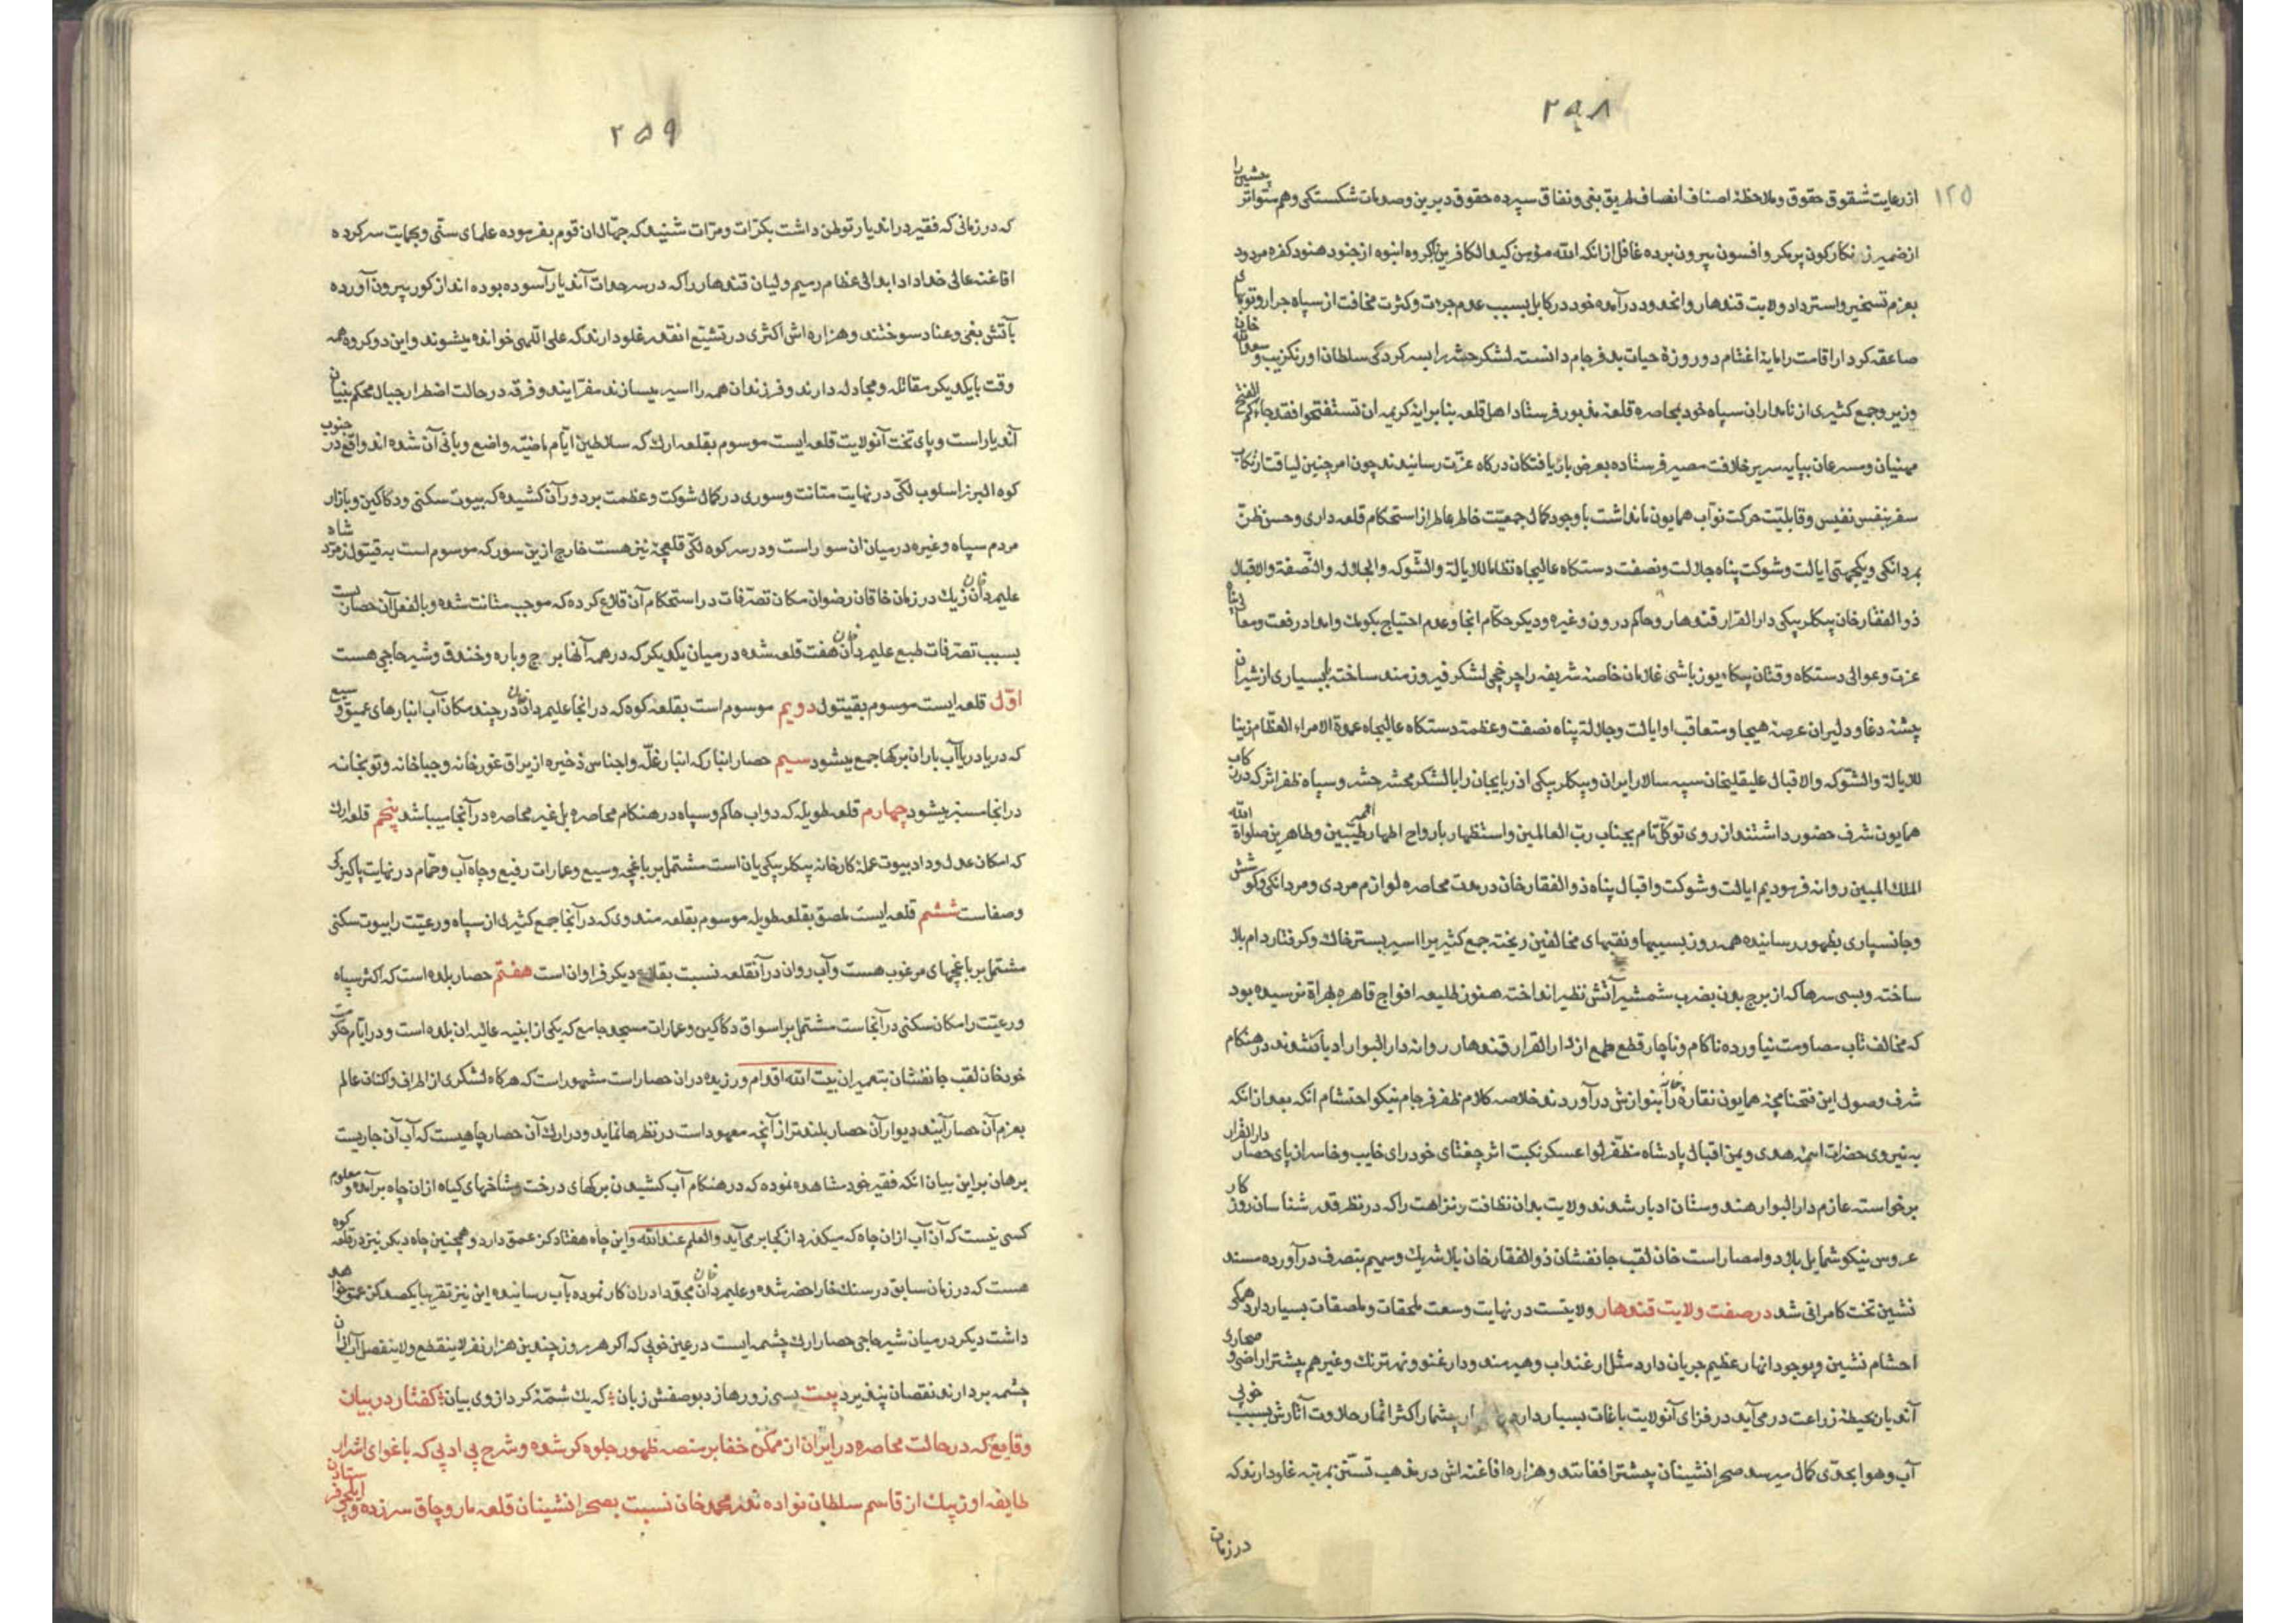 ۲۵۸
۱۲۵
از رعایت شقوق حقوق و ملاحظهٔ اصناف انصاف طریق بغی و نفاق سپرده حقوق دیرین و صدمات شکستگی و هم متواتر پیشین را
از ضمیر زنکارکون پر مکر و افسون بیرون برده غافل از انکه الله موهن کید الکافرین با گروه انبوه از جنود هنود کفره مردود
بعزم تسخیر و استرداد ولایت قندهار و انحدود درآمده خود در کابل بسبب عدم جرءت و کثرت مخافت از سپاه جرار و توپهای
صاعقه کردار اقامت را مایهٔ اغتنام دو روزهٔ حیات بدفرجام دانسته لشکر حشر را بسرکردگی سلطان اورنکزیب و سعدالله خان
وزیر و جمع کثیری از نامداران سپاه خود بمحاصره قلعهٔ مذبور فرستاد اهل قلعه بنابر ایهٔ کریمه ان تستفتحوا فقد جاءکم الفتح
منهیان و مسرعان بپایه سریر خلافت مصیر فرستاده بعرض باریافتکان درکاه عزت رسانیدند چون امر چنین لیاقت ارتکاب
سفر بنفس نفیس و قابلیت حرکت نواب همایون ما نداشت با وجود کمال جمعیت خاطر عاطر از استحکام قلعه داری و حسن ظن
بمردانکی و یکجهتی ایالت و شوکت پناه جلالت و نصفت دستکاه عالیجاه نظاما للایالة والشوکه والجلاله والنصفة والاقبال
ذوالفقار خان بیکلربیکی دارالقرار قندهار و حاکم درون و غیره و دیکر حکام انجا و عدم احتیاج بکومک و امداد رفعت و معالی پناه
عزت و عوالی دستکاه یوزباشی غلامان خاصهٔ شریفه را چرخچی لشکر فیروزمند ساخته با بسیاری از شیران
بیشهٔ دغا و دلیران عرصهٔ هیجا و متعاقب او ایالت و جلالة پناه نصفت و عظمة دستکاه عالیجاه عمدة الامراء العظام زینا
للایالة والشوکه والاقبال علیقلیخان سپه سالار ایران و بیکلربیکی اذربایجان را با لشکر محشر حشر و سپاه ظفر اثر که در رکاب
همایون شرف حضور داشتند از روی توکل تام بجناب رب العالمین و استظهار بارواح اطهار ائمه طیبین و طاهرین صلواة الله
الملک المبین روانه فرمودیم ایالت و شوکت و اقبال پناه ذوالفقار خان در مدت محاصره لوازم مردی و مردانکی و کوشش
و جانسپاری بظهور رسانیده همه روز بسیبها و نقبهای مخالفین ریخته جمع کثیر را اسیر بستر خاک و کرفتار دام بلا
ساخته و بسی سرها که از برج بدن بضرب شمشیر آتش نظیر انداخته هنوز طلیعه افواج قاهره بهراة نرسیده بود
که مخالف تاب مصاومت نیاورده ناکام و ناچار قطع طمع از دارالقرار قندهار روانه دارالبوار ادبار کشتند در هنکام
شرف وصول این فتحنامچهٔ همایون نقاره خانه را بنوازش درآوردند خلاصه کلام ظفر فرجام نیکو احتشام انکه بعد از انکه
به نیروی حضرات ائمهٔ هدی و یمن اقبال پادشاه مظفر لوا عسکر نکبت اثر جغتای خودرای خایب و خاسر از پای حصار دارالقرار
برخواسته عازم دارالبوار هندوستان ادبار شدند ولایت بدان نظافت و نزاهت را که در نظر قدر شناسان روزکار
عروس نیکو شمایل بلاد و امصار است خان لقب جانفشان ذوالفقار خان بلا شریک و سهیم بتصرف درآورده مسند
نشین تخت کامرانی شد در صفت ولایت قندهار ولایتست در نهایت وسعت ملحقات و ملصقات بسیار دارد همکی
احشام نشین و بوجود انهار عظیم جریان دارد مثل ارغنداب و هیرمند و دارغنو و نهر ترنک و غیرهم بیشتر اراضی و صحاری
آندیار بحیطهٔ زراعت درمی آید در فزای آنولایت باغات بسیار دارد بیشمار اکثر اثمار حلاوت آثارش بسبب خوبی
آب و هوا بحدی کمال میرسد صحرانشینان بیشتر افغانند و هزاره افاغنه اش در مذهب تسنن بمرتبه غلو دارند که
در زمان
۲۵۹
که در زمانی که فقیر در اندیار توطن داشت بکرات و مرات شنید که جهال ان قوم بفرموده علمای سنی و بحمایت سرکرده
افاغنه عالی خداداد ابدالی عظام رمیم ولیان قندهار را که در سرحدات آندیار آسوده بوده اند از کور بیرون آورده
بآتش بغی و عناد سوختند و هزاره اش اکثری در تشیع انقدر غلو دارند که علی اللهی خوانده میشوند و این دو کروه همه
وقت با یکدیکر مقاتله و مجادله دارند و فرزندان همه را اسیر میسازند مفر ایندو فرقه در حالت اضطرار جبال محکم بنیان
آندیار است و پای تخت آنولایت قلعه ایست موسوم بقلعه ارک که سلاطین ایام ماضیه واضع و بانی آن شده اند واقع در جنوب
کوه البرز اسلوب لکی در نهایت متانت و سوری در کمال شوکت و عظمت بر دور آن کشیده که بیوت سکنی و دکاکین و بازار
مردم سپاه و غیره در میان ان سور است و در سر کوه لکی قلعچهٔ نیز هست خارج ازین سور که موسوم است به قیتول زمرد شاه
علیمردان خان زیک در زمان خاقان رضوان مکان تصرفات در استحکام آن قلاع کرده که موجب متانت شده و بالفعل آن حصاریست
بسبب تصرفات طبع علیمردان خان هفت قلعه شده در میان یکدیکر که در همه آنها برج و باره و خندق و شیرحاجی هست
اول قلعه ایست موسوم بقیتول دویم موسوم است بقلعه کوه که در انجا علیمردان خان در چند مکان آب انبارهای عمیق و وسیع
که دریا دریا آب باران برکها جمع میشود سیم حصار انبار که انبار غله و اجناس ذخیره از یراق غورخانه و جباخانه و توپخانه
در انجا میشود چهارم قلعه طویله که دواب حاکم و سپاه در هنکام محاصره بل غیر محاصره در آنجا میباشد پنجم قلعه ارک
که امکان عدل و داد بیوت عملهٔ کارخانه بیکلربیکیان است مشتمل بر باغچه وسیع و عمارات رفیع و چاه آب و حمام در نهایت پاکیزکی
و صفاست ششم قلعه ایست ملصق بقلعه طویله موسوم بقلعه مندوی که در آنجا جمع کثیری از سپاه و رعیت را بیوت سکنی
مشتمل بر باغچهای مرغوب هست و آب روان در آنقلعه نسبت بقلاع دیکر فراوان است هفتم حصار بلده است که اکثر سپاه
و رعیت را مکان سکنی در آنجاست مشتمل بر اسواق دکاکین و عمارات مسجد جامع که یکی از ابنیه عالیه ان بلده است و در ایام حکومت
خود خان لقب جانفشان بتعمیر ان بیت الله اقدام ورزیده در ان حصار است مشهور است که هرکاه لشکری از اطراف و اکناف عالم
بعزم آن حصار آیند دیوار آن حصار بلندتر از آنچه معهود است در نظرها نماید و در ارک آن حصار چاهیست که آب آن جاریست
برهان بر این بیان انکه فقیر خود مشاهده نموده که در هنکام آب کشیدن برکهای درخت و شاخهای کیاه از ان چاه برآمده و معلوم
کسی نیست که آن آب از ان چاه که میکذرد از کجا بر می آید والعلم عند الله و این چاه هفتاد کز عمق دارد و همچنین چاه دیکر نیز در قلعه کوه
هست که در زمان سابق در سنک خارا حفر شده و علیمردان خان مجددا در ان کار نموده بآب رسانیده این نیز تقریبا یکصد کز عمق خواهد
داشت دیکر در میان شیرحاجی حصار ارک چشمه ایست در عین خوبی که اکر هر روز چندین هزار نفر لاینقطع و لاینفصل آب از ان
چشمه بردارند نقصان نپذیرد بیت بسی زورها زد بوصفش زبان که یک شمهٔ کرد از وی بیان کفتار در بیان
وقایع که در حالت محاصره در ایران از ممکن خفا بر منصه ظهور جلوه کر شده و شرح بی ادبی که باغوای اشرار
طایفه اوزبک از قاسم سلطان نواده نذر محمد خان نسبت بصحرانشینان قلعه ماروچاق سرزده و ایلچی فرستادن